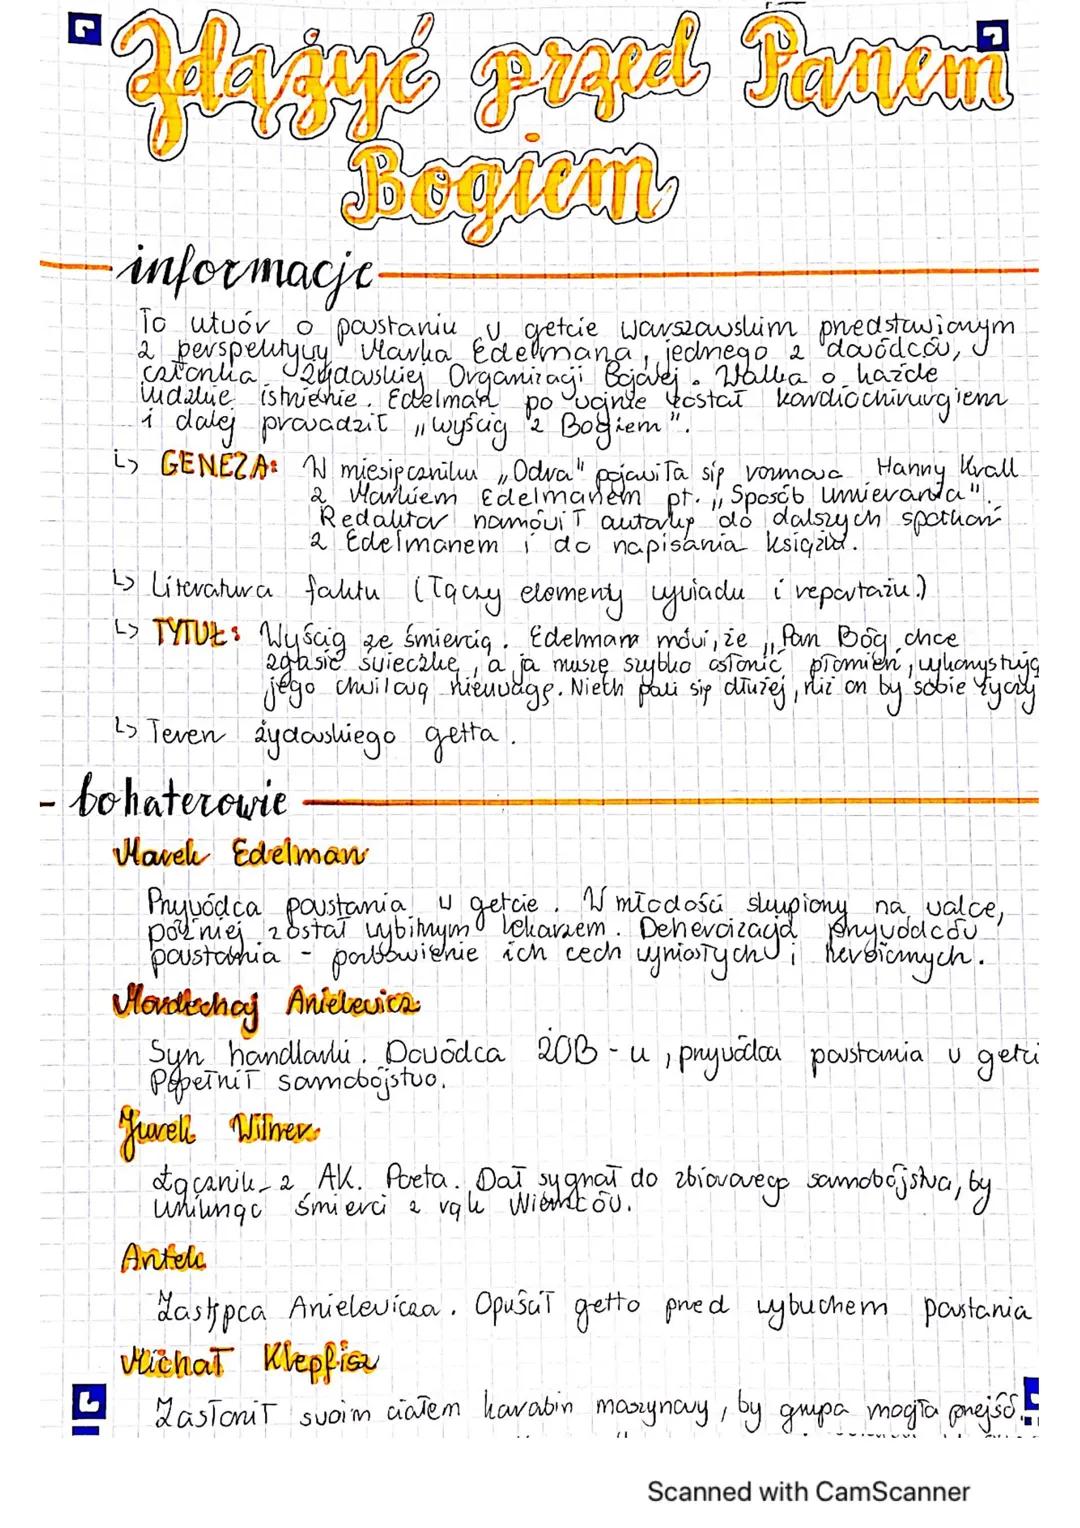 Zdążyć przed Panem
Bogiem
informacje
To utwór o powstaniu w getcie warszawskim przedstawionym
z perspektywy Marka Edelmana, jednego z dowódców,
członka Żydowskiej Organizacji Bojowej. Walka o każde
ludzkie istnienie. Edelman po wojnie został kardiochirurgiem
i dalej prowadził „wyścig z Bogiem".
↳ GENEZA: W miesięczniku „Odra" pojawiła się rozmowa Hanny Krall
z Markiem Edelmanem pt. „Sposób umierania".
Redaktor namówił autorkę do dalszych spotkań
z Edelmanem i do napisania książki.
↳ Literatura faktu (łączy elementy wywiadu i reportażu.)
↳ TYTUŁ: Wyścig ze śmiercią. Edelman mówi, że „Pan Bóg chce
zgasić świeczkę, a ja muszę szybko osłonić płomień, wykorzystując
jego chwilową nieuwagę. Niech pali się dłużej, niż on by sobie życzy
↳ Teren żydowskiego getta.
- bohaterowie
Marek Edelman
Przywódca powstania w getcie. W młodości skupiony na walce,
później został wybitnym lekarzem. Deheroizacja przywódców
powstania - pozbawienie ich cech wyniosłych i heroicznych.
Mordechaj Anielewicz
Syn handlarki. Dowódca ŻOB-u, przywódca powstania w getci
Popełnił samobójstwo.
Jurek Wilner
Łącznik z AK. Poeta. Dał sygnał do zbiorowego samobójstwa, by
uniknąć śmierci z rąk Niemców.
Antek
Zastępca Anielewicza. Opuścił getto przed wybuchem powstania
Michał Klepfisz
Zasłonił swoim ciałem karabin maszynowy, by grupa mogła przejść.
Scanned with CamScanner